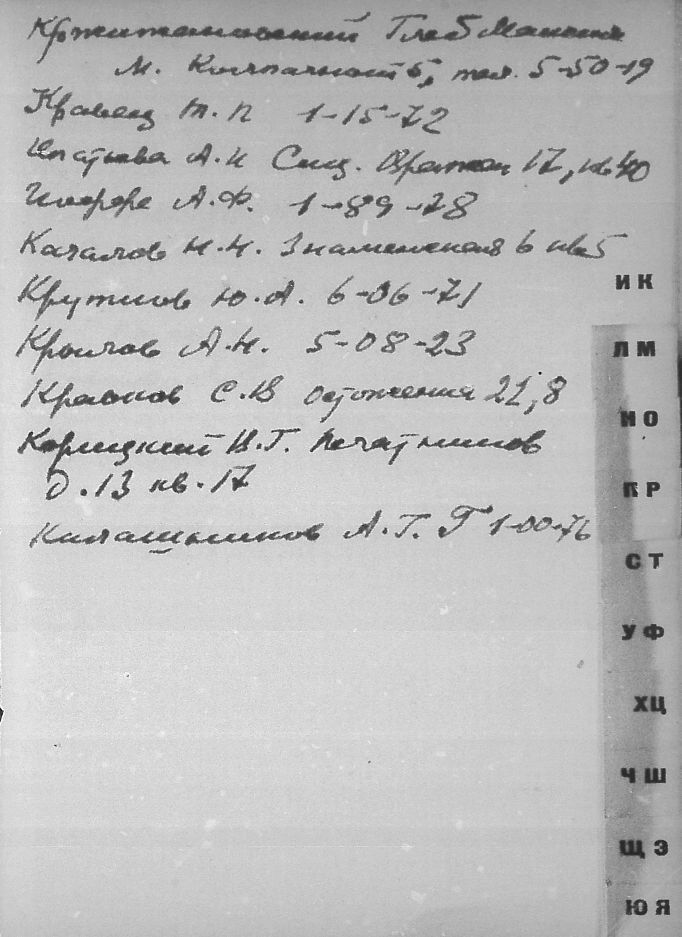 Кржижановский Глеб Максим
М. Колпачный 5, тел. 5-50-19
Кравец Т. П 1-15-72
Игнатьева А. И Сив. Вражек 17, кв 40
Иоффе А. Ф. 1-89-78
Качалов Н. Н. Знаменская 6 кв 5
Крутков Ю. А. 6-06-71
Крылов А. Н. 5-08-23
Кравков С. В Остоженка 21, 8
Корицкий В. Г. Печатников
д. 13 кв. 17
Калашников А. Г. Г 1-00-76
И К
Л М
Н О
П Р
С Т
У Ф
Х Ц
Ч Ш
Щ Э
Ю Я